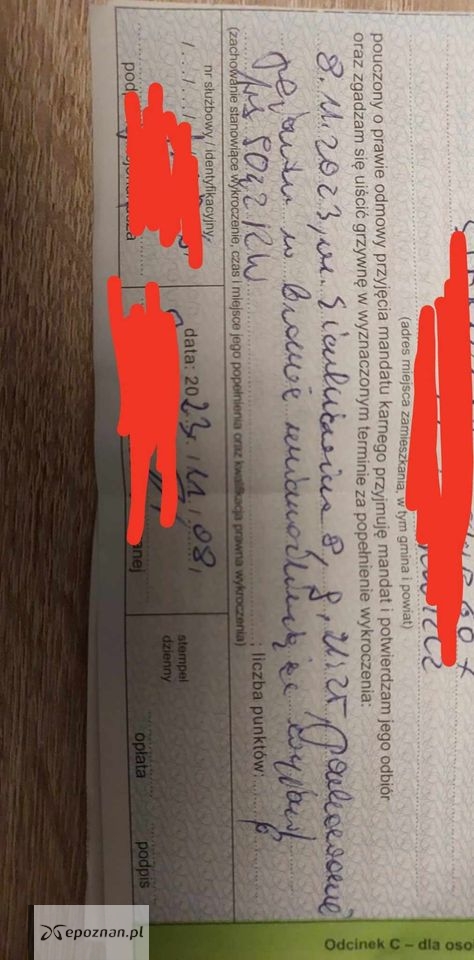 (adres miejsca zamieszkania, w tym gmina i powiat)
pouczony o prawie odmowy przyjęcia mandatu karnego przyjmuję mandat i potwierdzam jego odbiór
oraz zgadzam się uiścić grzywnę w wyznaczonym terminie za popełnienie wykroczenia:
8.11.2023, ul. 8, g. 21.25, Parkowanie
pojazdu w bramie uniemożliwiające wyjazd
liczba punktów: 0
(zachowanie stanowiące wykroczenie, czas i miejsce jego popełnienia oraz kwalifikacja prawna wykroczenia)
nr służbowy / identyfikacyjny
data: 2023.11.08
stempel
dzienny
opłata
podpis
Odcinek C – dla oso
epoznan.pl